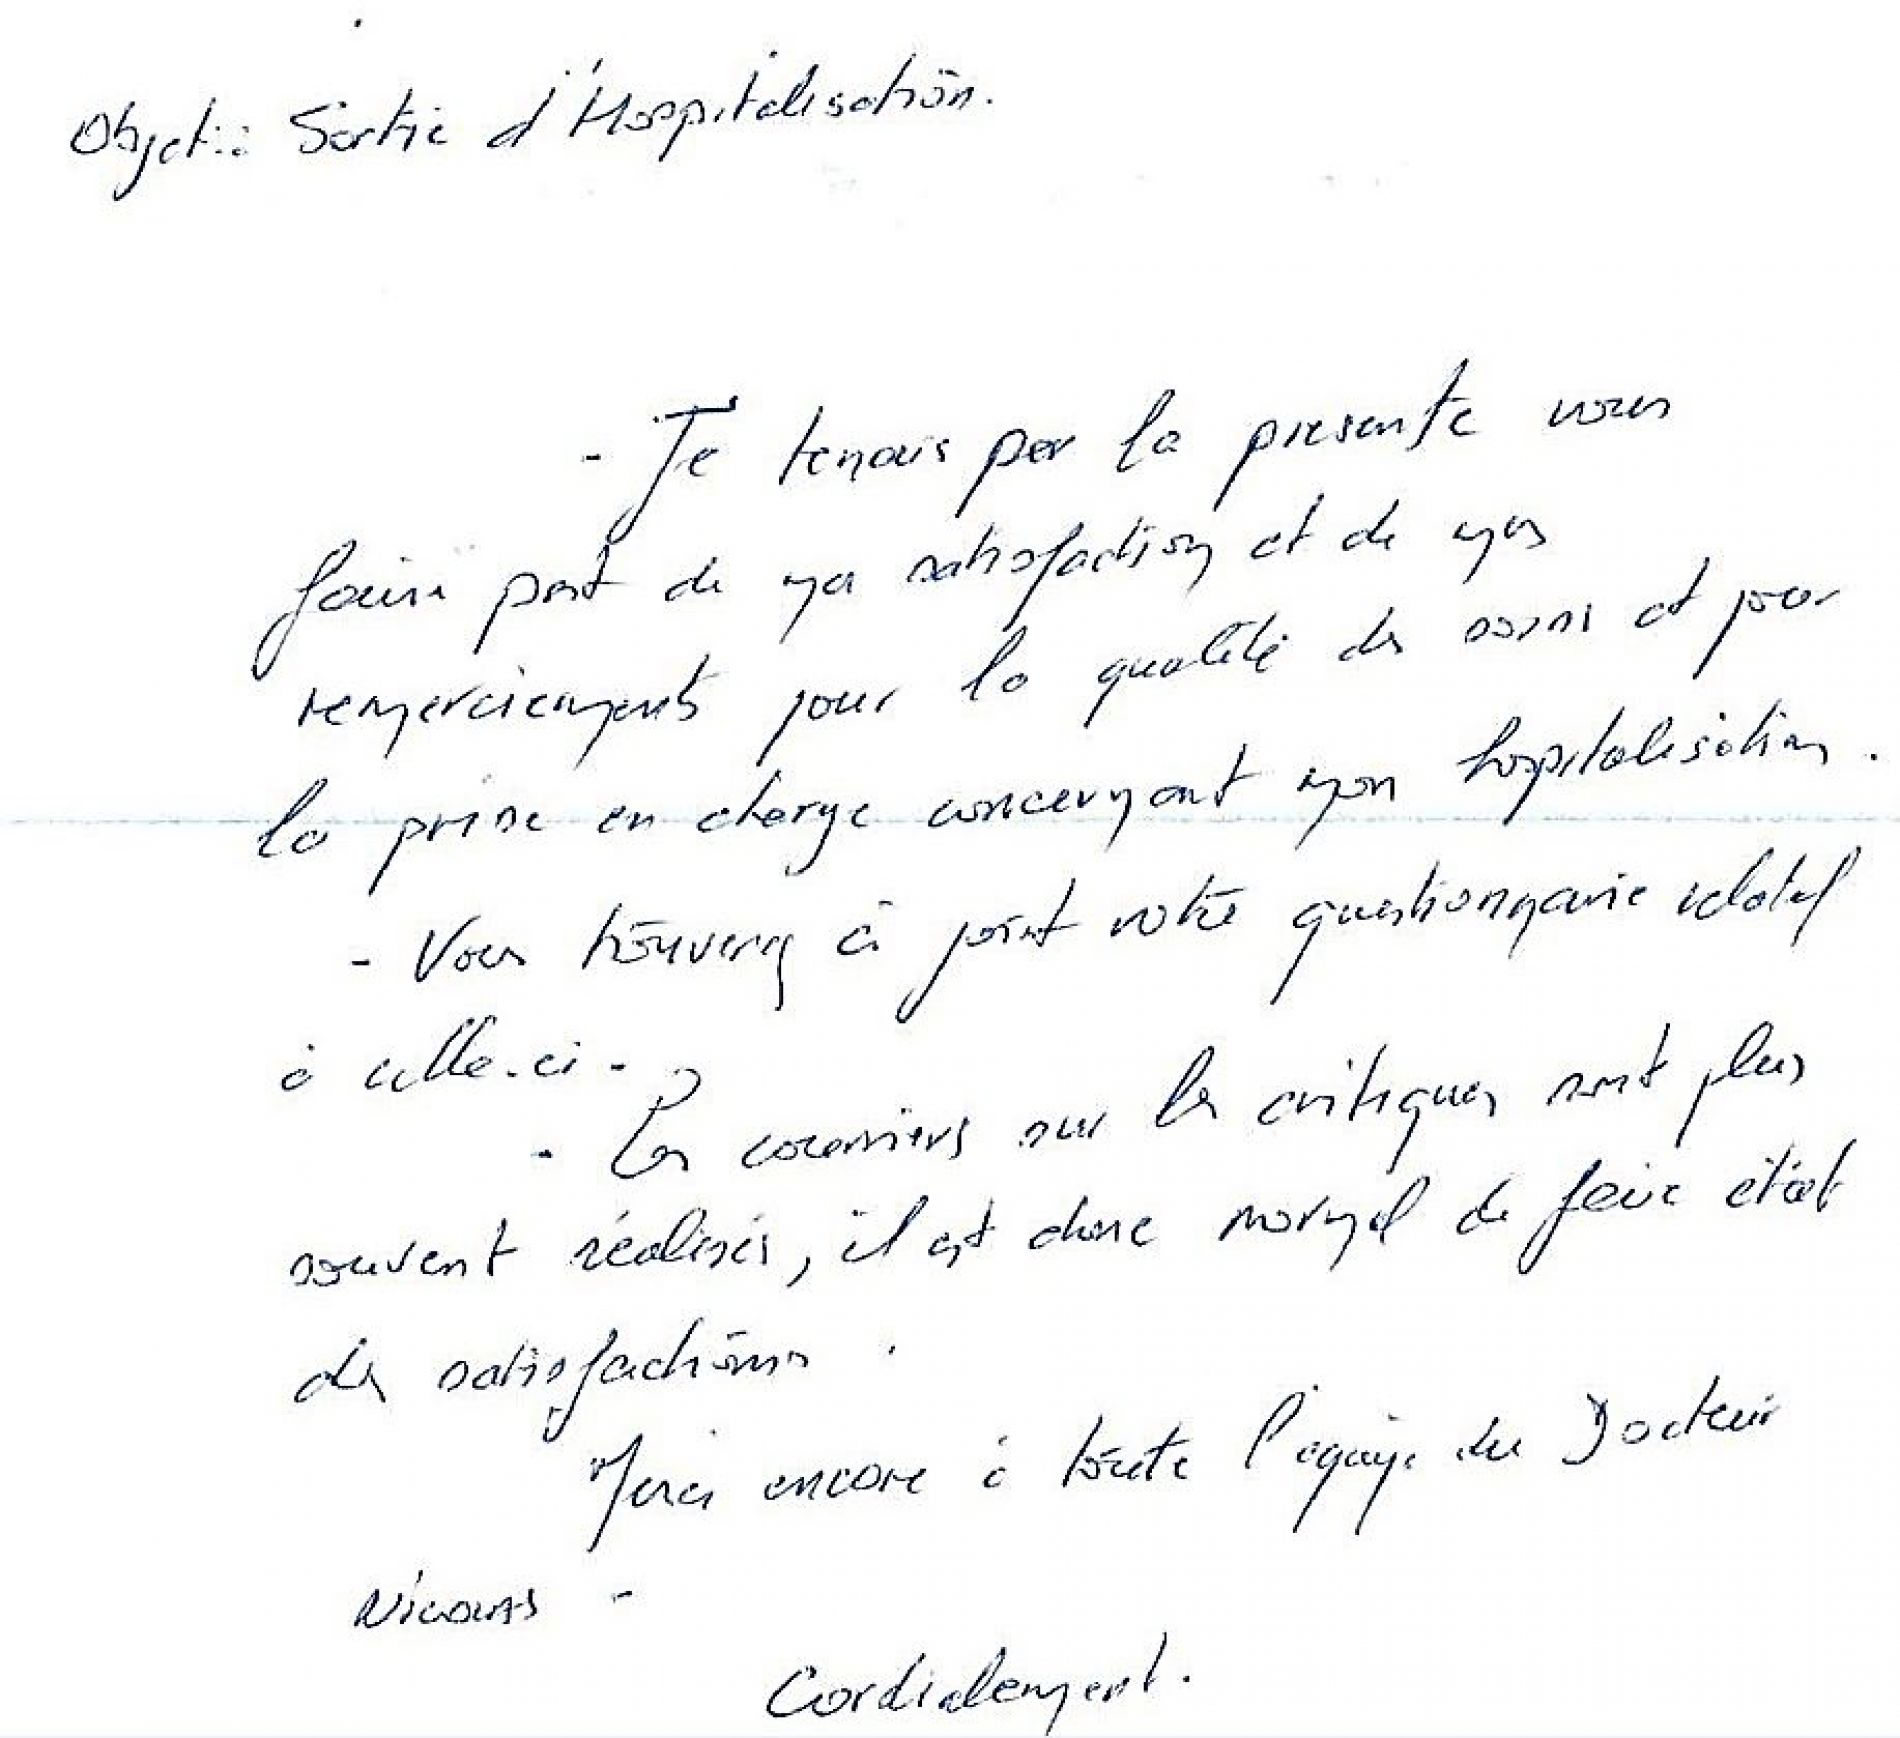 Objet : Sortie d'Hospitalisation.
- Je tenais par la presente vous
faire part de ma satisfaction et de mes
remerciements pour la qualité des soins et pour
la prise en charge concernant mon hospitalisation.
- Vous trouverez ci joint votre questionnaire relatif
à celle-ci -
- Les courriers sur les critiques sont plus
souvent réalisés, il est donc normal de faire état
des satisfactions.
Merci encore à toute l'équipe du Docteur
-
Cordialement.